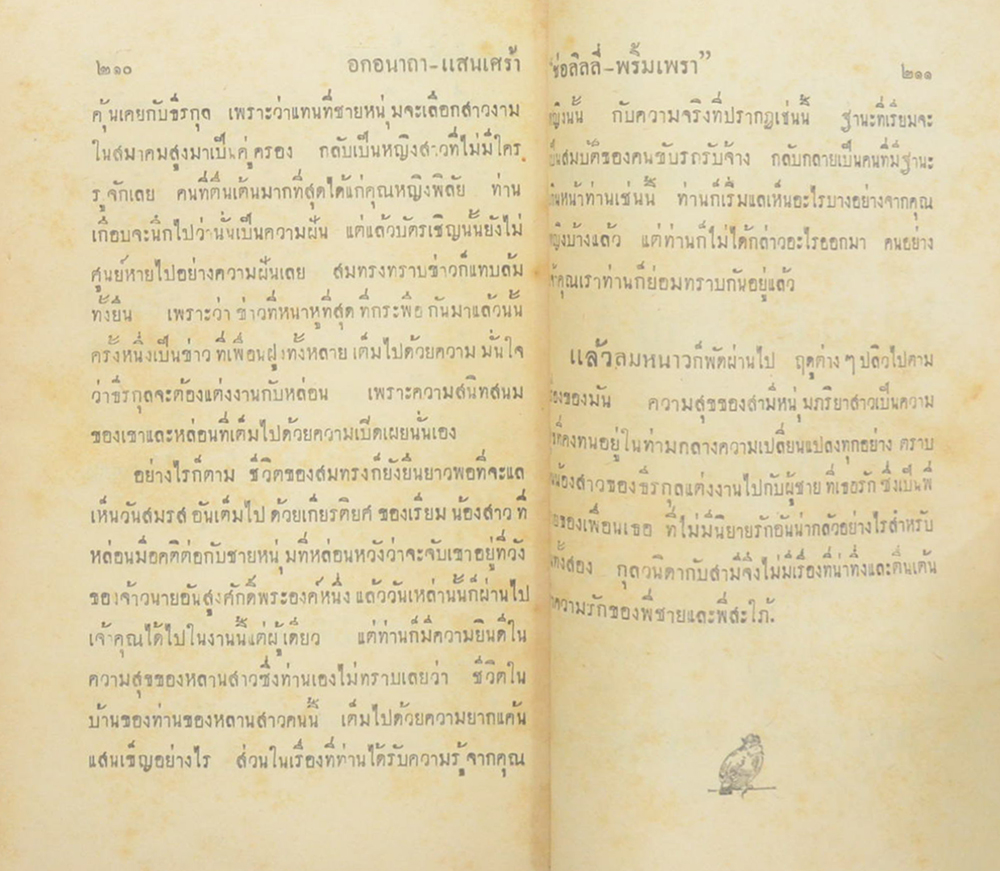 ๒๑๐
อกอนาถา-แสนเศร้า
คุ้นเคยกับธีรกุล เพราะว่าแทนที่ชายหนุ่มจะเลือกสาวงาม
ในสมาคมสูงมาเป็นคู่ครอง กลับเป็นหญิงสาวที่ไม่มีใคร
รู้จักเลย คนที่ตื่นเต้นมากที่สุดได้แก่คุณหญิงพิลัย ท่าน
เกือบจะนึกไปว่านั่นเป็นความฝัน แต่แล้วบัตรเชิญนั้นยังไม่
ศูนย์หายไปอย่างความฝันเลย สมทรงทราบข่าวก็แทบล้ม
ทั้งยืน เพราะว่า ข่าวที่หนาหูที่สุด ที่กระพือ กันมาแล้วนั้น
ครั้งหนึ่งเป็นข่าว ที่เพื่อนฝูงทั้งหลาย เต็มไปด้วยความ มั่นใจ
ว่าธีรกุลจะต้องแต่งงานกับหล่อน เพราะความสนิทสนม
ของเขาและหล่อนที่เต็มไปด้วยความเปิดเผยนั่นเอง
อย่างไรก็ตาม ชีวิตของสมทรงก็ยังยืนยาวพอที่จะแล
เห็นวันสมรส อันเต็มไป ด้วยเกียรติยศ ของเรียม น้องสาว ที่
หล่อนมีอคติต่อกับชายหนุ่มที่หล่อนหวังว่าจะจับเขาอยู่ที่วัง
ของเจ้านายอันสูงศักดิ์พระองค์หนึ่ง แล้ววันเหล่านั้นก็ผ่านไป
เจ้าคุณได้ไปในงานนี้แต่ผู้เดียว แต่ท่านก็มีความยินดีใน
ความสุขของหลานสาวซึ่งท่านเองไม่ทราบเลยว่า ชีวิตใน
บ้านของท่านของหลานสาวคนนี้ เต็มไปด้วยความยากแค้น
แสนเข็ญอย่างไร ส่วนในเรื่องที่ท่านได้รับความรู้จากคุณ
“ช่อลิลลี่-พริ้มเพรา”
๒๑๑
กับความจริงที่ปรากฏเช่นนี้ ฐานะที่เรียมจะ
สมบัติของคนขับรถรับจ้าง กลับกลายเป็นคนที่มีฐานะ
หน้าท่านเช่นนี้ ท่านก็เริ่มแลเห็นอะไรบางอย่างจากคุณ
บ้างแล้ว แต่ท่านก็ไม่ได้กล่าวอะไรออกมา คนอย่าง
คุณเราท่านก็ย่อมทราบกันอยู่แล้ว
แล้วลมหนาวก็พัดผ่านไป ฤดูต่าง ๆ ปลิวไปตาม
ของมัน ความสุขของสามีหนุ่มภริยาสาวเป็นความ
คงทนอยู่ในท่ามกลางความเปลี่ยนแปลงทุกอย่าง ตราบ
น้องสาวของธีรกุลแต่งงานไปกับผู้ชาย ที่เธอรัก ซึ่งเป็นพี่
ของเพื่อนเธอ ที่ไม่มีนิยายรักอันน่ากลัวอย่างไรสำหรับ
ทั้งสอง กุลวนิดากับสามีจึงไม่มีเรื่องที่น่าทึ่งและตื่นเต้น
ความรักของพี่ชายและพี่สะใภ้.